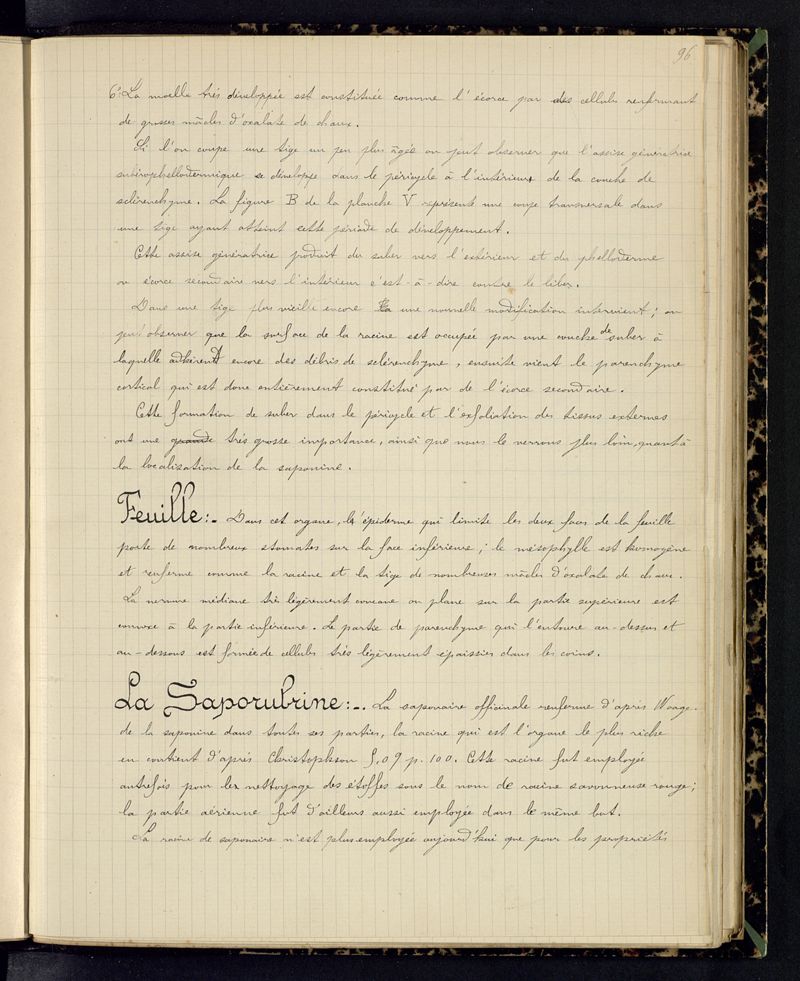 96
6° La moelle très développée est constituée comme l'écorce par des cellules renfermant
de grosses mâcles d'oxalate de chaux.
Si l'on coupe une tige un peu plus âgée on peut observer que l'assise génératrice
subérophellodermique se développe dans le péricycle à l'intérieur de la couche de
sclérenchyme. La figure B de la planche V représente une coupe transversale dans
une tige ayant atteint cette période de développement.
Cette assise génératrice produit du suber vers l'extérieur et du phelloderme
ou écorce secondaire vers l'intérieur c'est-à-dire contre le liber.
Dans une tige plus vieille encore une nouvelle modification intervient ; on
peut observer que la surface de la racine est occupée par une couche de suber à
laquelle adhèrent encore des débris de sclérenchyme, ensuite vient le parenchyme
cortical qui est donc entièrement constitué par de l'écorce secondaire.
Cette formation de suber dans le péricycle et l'exfoliation des tissus externes
ont une grande très grosse importance, ainsi que nous le verrons plus loin, quant à
la localisation de la saponine.
Feuille :- Dans cet organe, l'épiderme qui limite les deux faces de la feuille
porte de nombreux stomates sur la face inférieure ; le mésophylle est homogène
et renferme comme la racine et la tige de nombreuses mâcles d'oxalate de chaux.
La nervure médiane très légèrement concave ou plane sur la partie supérieure est
convexe à la partie inférieure. La partie de parenchyme qui l'entoure au-dessus et
au-dessous est formée de cellules très légèrement épaissies dans les coins.
La Saporubrine :-. La saponaire officinale renferme d'après Waage.
de la saponine dans toutes ses parties, la racine qui est l'organe le plus riche
en contient d'après Christophson 5,09 p. 100. Cette racine fut employée
autrefois pour le nettoyage des étoffes sous le nom de racine savonneuse rouge ;
la partie aérienne fut d'ailleurs aussi employée dans le même but.
La racine de saponaire n'est plus employée aujourd'hui que pour les propriétés